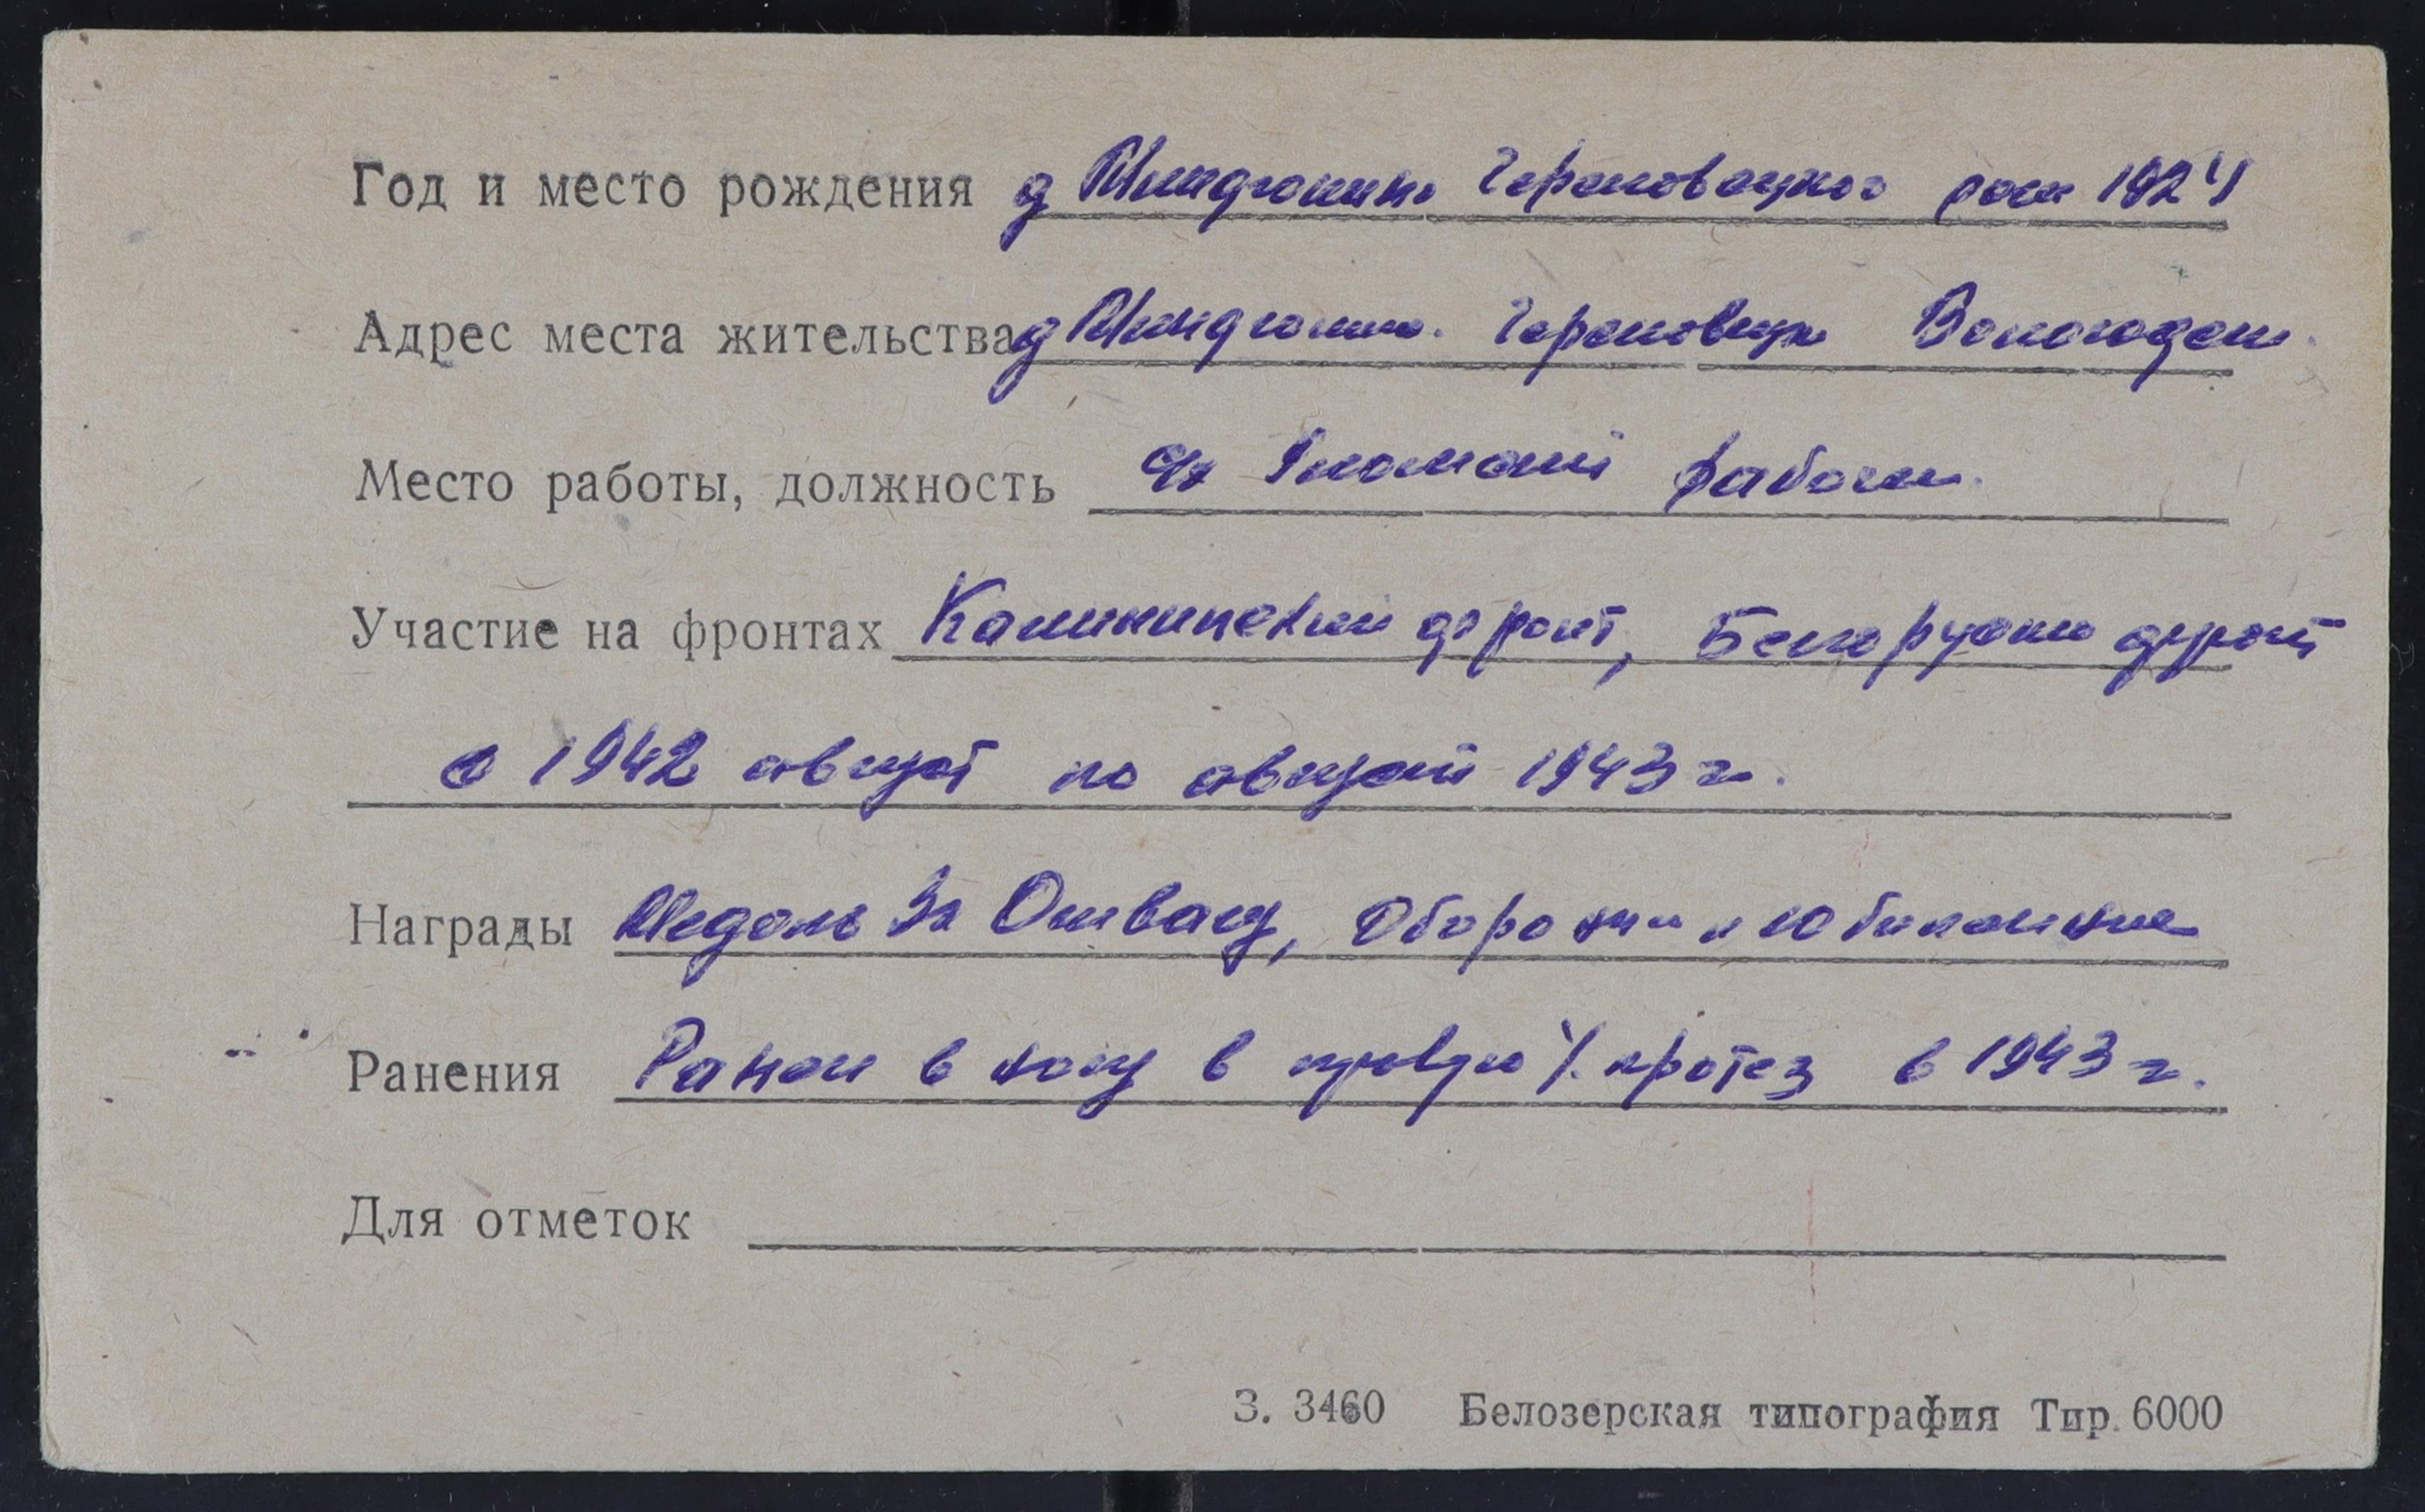 Год и место рождения д Миндюкино Череповецкого 1924
Адрес места жительства д Миндюкино. Череповецк Вологодск.
Место работы, должность рабочий.
Участие на фронтах Калининский фронт, Белорусский фронт
с 1942 август по август 1943 г.
Награды Медаль За Отвагу, Оборонии и Юбилейные
Ранения Ранен в ногу в протез в 1943 г.
Для отметок
З. 3460 Белозерская типография Тир. 6000